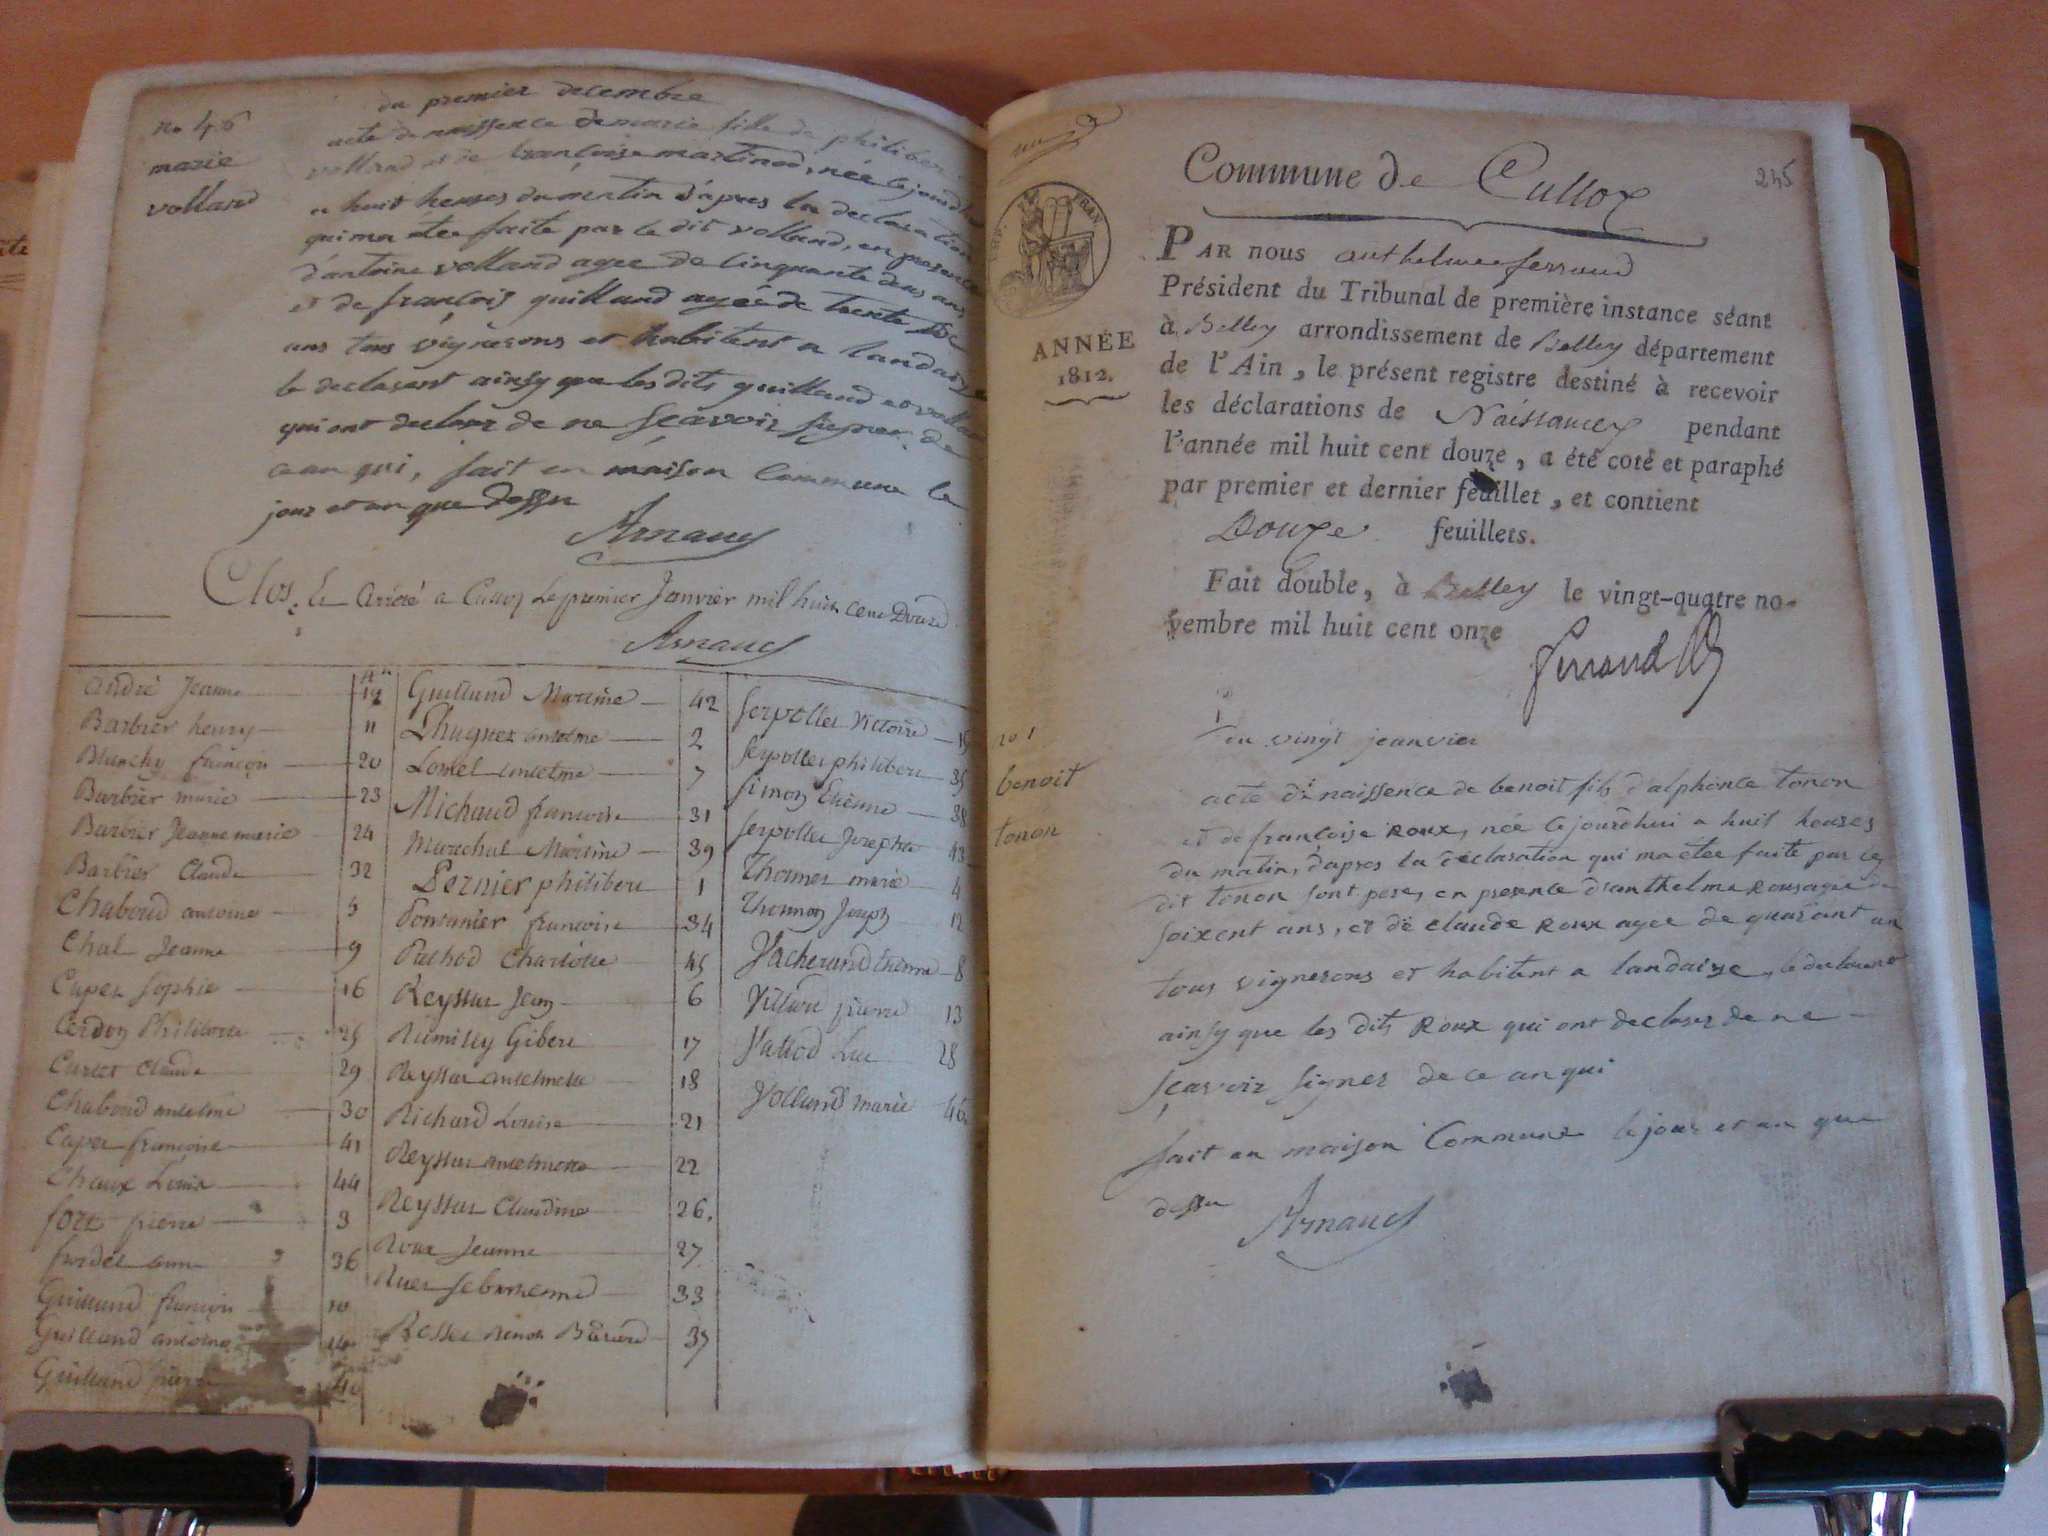 du premier decembre
no 46
marie
volland
acte de naissence de marie fille de philiber
volland et de françoise martinod, née le jourdhui
a huit heures du matin d'apres la declaration
qui ma étée faite par le dit volland, en presence
d'antoine volland agee de cinquante deux ans
et de françois guilland agée de trente six
ans tous vignerons et habitent a landaize
le declarant ainsy que les dits guilland et volland
qui ont declaré de ne sçavoir signer de
ce an qui, fait en maison commune le
jour et an que dessu
Arnaud
Clos et Arrété a Culloz le premier Janvier mil huit cent Douze
Arnaud
André Jeanne
Barbier henry 11
Blanchy françois 20
Barbier marie 23
Barbier Jeanne marie 24
Barbier Claude 32
Chaboud antoine 5
Chal Jeanne 9
Cuper Sophie 16
Cerdon Philiberte 25
Curtet Claude 29
Chaboud antelme 30
Cuper françoise 41
Chaux Louis 44
fort pierre 3
36
Guilland françois 10
Guilland antoine
Guilland pierre 40
Guilland Martine 42
Lhugnet antelme 2
antelme 7
Michaud françoise 31
Marechal Martine 39
Pernier philibert 1
françoise 34
Pachod Charlotte 45
Reyssar Jean 6
Rumilly Gibert 17
Reyssar antelmette 18
Richard Louise 21
Reyssar antelmette 22
Reyssar Claudine 26.
Roux Jeanne 27
33
37
Serpollet Victoire 15
Serpollet philibert 35
Simon Etienne 38
Serpollet Josephte 43
marie 4
Joseph 12
Vacherand Etienne 8
Villard pierre 13
Vallod Luc 28
Volland marie 46
245
Commune de Culloz
EMP. FRAN.
ANNÉE
1812.
PAR nous anthelme ferrand
Président du Tribunal de première instance séant
à Belley arrondissement de Belley département
de l'Ain, le présent registre destiné à recevoir
les déclarations de Naissances pendant
l'année mil huit cent douze, a été coté et paraphé
par premier et dernier feuillet, et contient
Douze feuillets.
Fait double, à Belley le vingt-quatre no-
vembre mil huit cent onze
ferrand
no 1
benoit
tonon
du vingt jeanvier
acte de naissence de benoit fils d'alphonce tonon
et de françoise roux, née le jourdhui a huit heures
du matin, d'apres la declaration qui ma étée faite par le
dit tonon sont pere, en presence d'anthelme roux agee de
soixent ans, et de claude roux agee de quarant an
tous vignerons et habitent a landaize, le declarent
ainsy que les dits roux qui ont declarer de ne
sçavoir signer de ce an qui
fait en maison Commune le jour et an que
dessu Arnaud